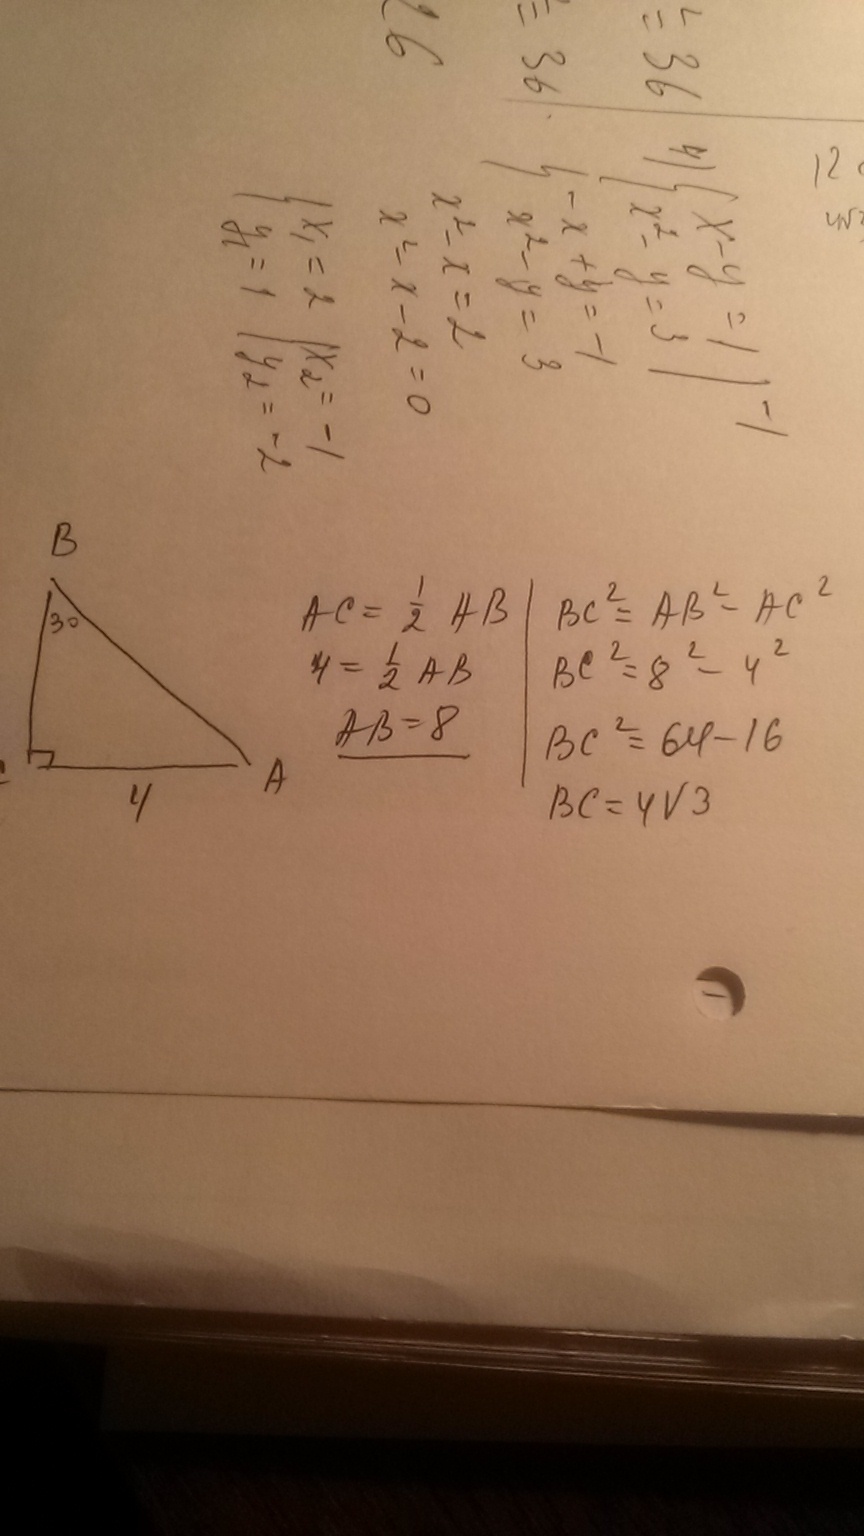 = 36
= 36
26
4) { x - y = 1 | -1
{ x² - y = 3
{ - x + y = -1
x² - y = 3
x² - x = 2
x² - x - 2 = 0
{ x₁ = 2 { x₂ = -1
y₁ = 1 y₂ = -2
12
B
30
C
4
A
AC = 1/2 AB
4 = 1/2 AB
AB = 8
BC² = AB² - AC²
BC² = 8² - 4²
BC² = 64 - 16
BC = 4√3